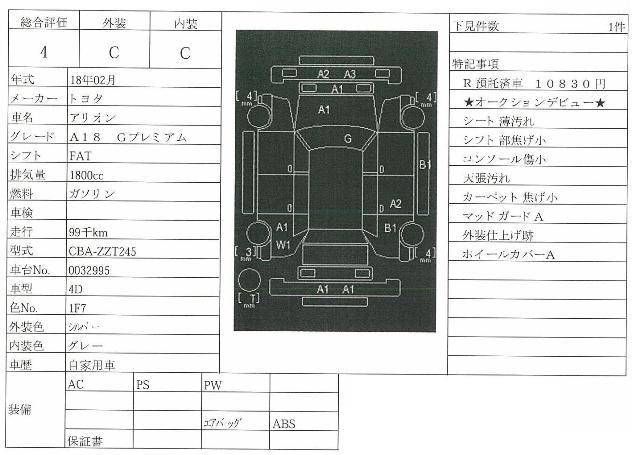 総合評価 外装 内装
4 C C
年式 18年02月
メーカー トヨタ
車名 アリオン
グレード A18 Gプレミアム
シフト FAT
排気量 1800cc
燃料 ガソリン
車検
走行 99千km
型式 CBA-ZZT245
車台No. 0032995
車型 4D
色No. 1F7
外装色 シルバー
内装色 グレー
車歴 自家用車
装備
AC PS PW
エアバッグ ABS
保証書
A2 A3
A1
[4] mm
[4] mm
A1
G
B1
A2
A1
B1
W1
[3] mm
[4] mm
[T] mm
A1 A1
下見件数 1件
特記事項
R預託済車 10830円
★オークションデビュー★
シート 薄汚れ
シフト 部焦げ小
コンソール傷小
天張汚れ
カーペット 焦げ小
マッド ガード A
外装仕上げ跡
ホイールカバーA